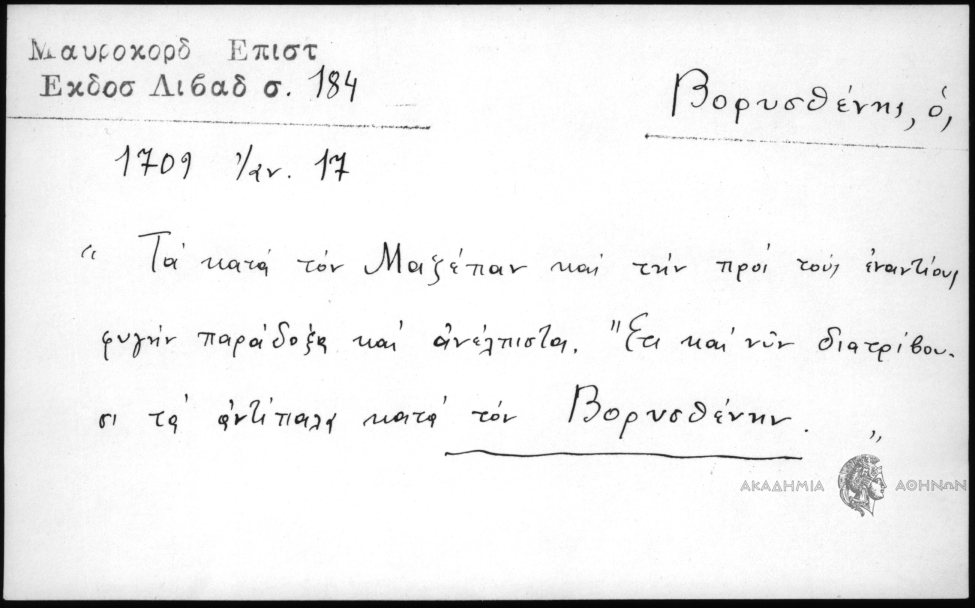 Μαυροκορδ Επιστ
Εκδοσ Λιβαδ σ. 184
Βορυσθένης, ὁ,
1709 Ἰαν. 17
“ Τά κατά τόν Μαζέπαν καί τήν πρός τούς ἐναντίους
φυγήν παράδοξα καί ἀνέλπιστα. Ἔτι καί νῦν διατρίβου-
σι τά ἀντίπαλα κατά τόν Βορυσθένην. „
ΑΚΑΔΗΜΙΑ ΑΘΗΝΩΝ